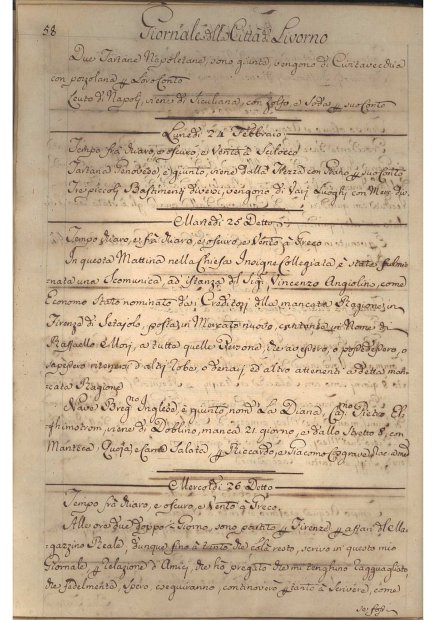 58
Giornale della Città di Livorno
Due Tartane Napoletane, sono giunte, vengono di Civitavecchia
con pozolana p Loro Conto
Leuto di Napoli, viene di Siciliana, con Zolfo, e Soda p suo Conto
Lunedì 24 Febbraio
Tempo frà chiaro, e oscuro, e Vento à Scilocco
Tartana Genovese, è giunta, viene dalla
Tre piccoli Bastimenti diversi, vengono di Varj Luoghi con Merci div.
Martedì 25 Detto
Tempo chiaro, e frà chiaro, e oscuro e Vento à Greco
In questa Mattina nella Chiesa Insigne Collegiata, è stata fulmi-
nata una Scomunica, ad Istanza del Sigr. Vincenzo Angiolini, come
Economo Stato nominato da i Creditori della mancata Ragione in
Firenze di Setajolo, posta in Mercato nuovo, cantante in Nome di
Raffaello à tutte quelle Persone, che avessero, o possedessero, o
sapessero ritenersi d'altri robe, o denari ed altro attenenti a detta man-
cata Ragione
Nave Inglese, è giunta, nomta La Diana, Capno Pietro
viene di Doblino, manca 21 giorno, e dallo Stretto 8, con
Manteca Quoja, e Carne Salata p Riccardo, e Giacomo
Mercoledì 26 Detto
Tempo frà chiaro, e oscuro, e Vento à Greco
Alle ore due doppo Giorno, sono partito p Firenze p affari del Ma-
gazzino Reale, dunque fino a tanto che colà resto, scrivo in questo mio
Giornale, p relazione d'Amici, che ho pregato che mi tenghino ragguagliato,
che fedelmente, spero, eseguiranno, continoverò p tanto à Scrivere, come
se foss